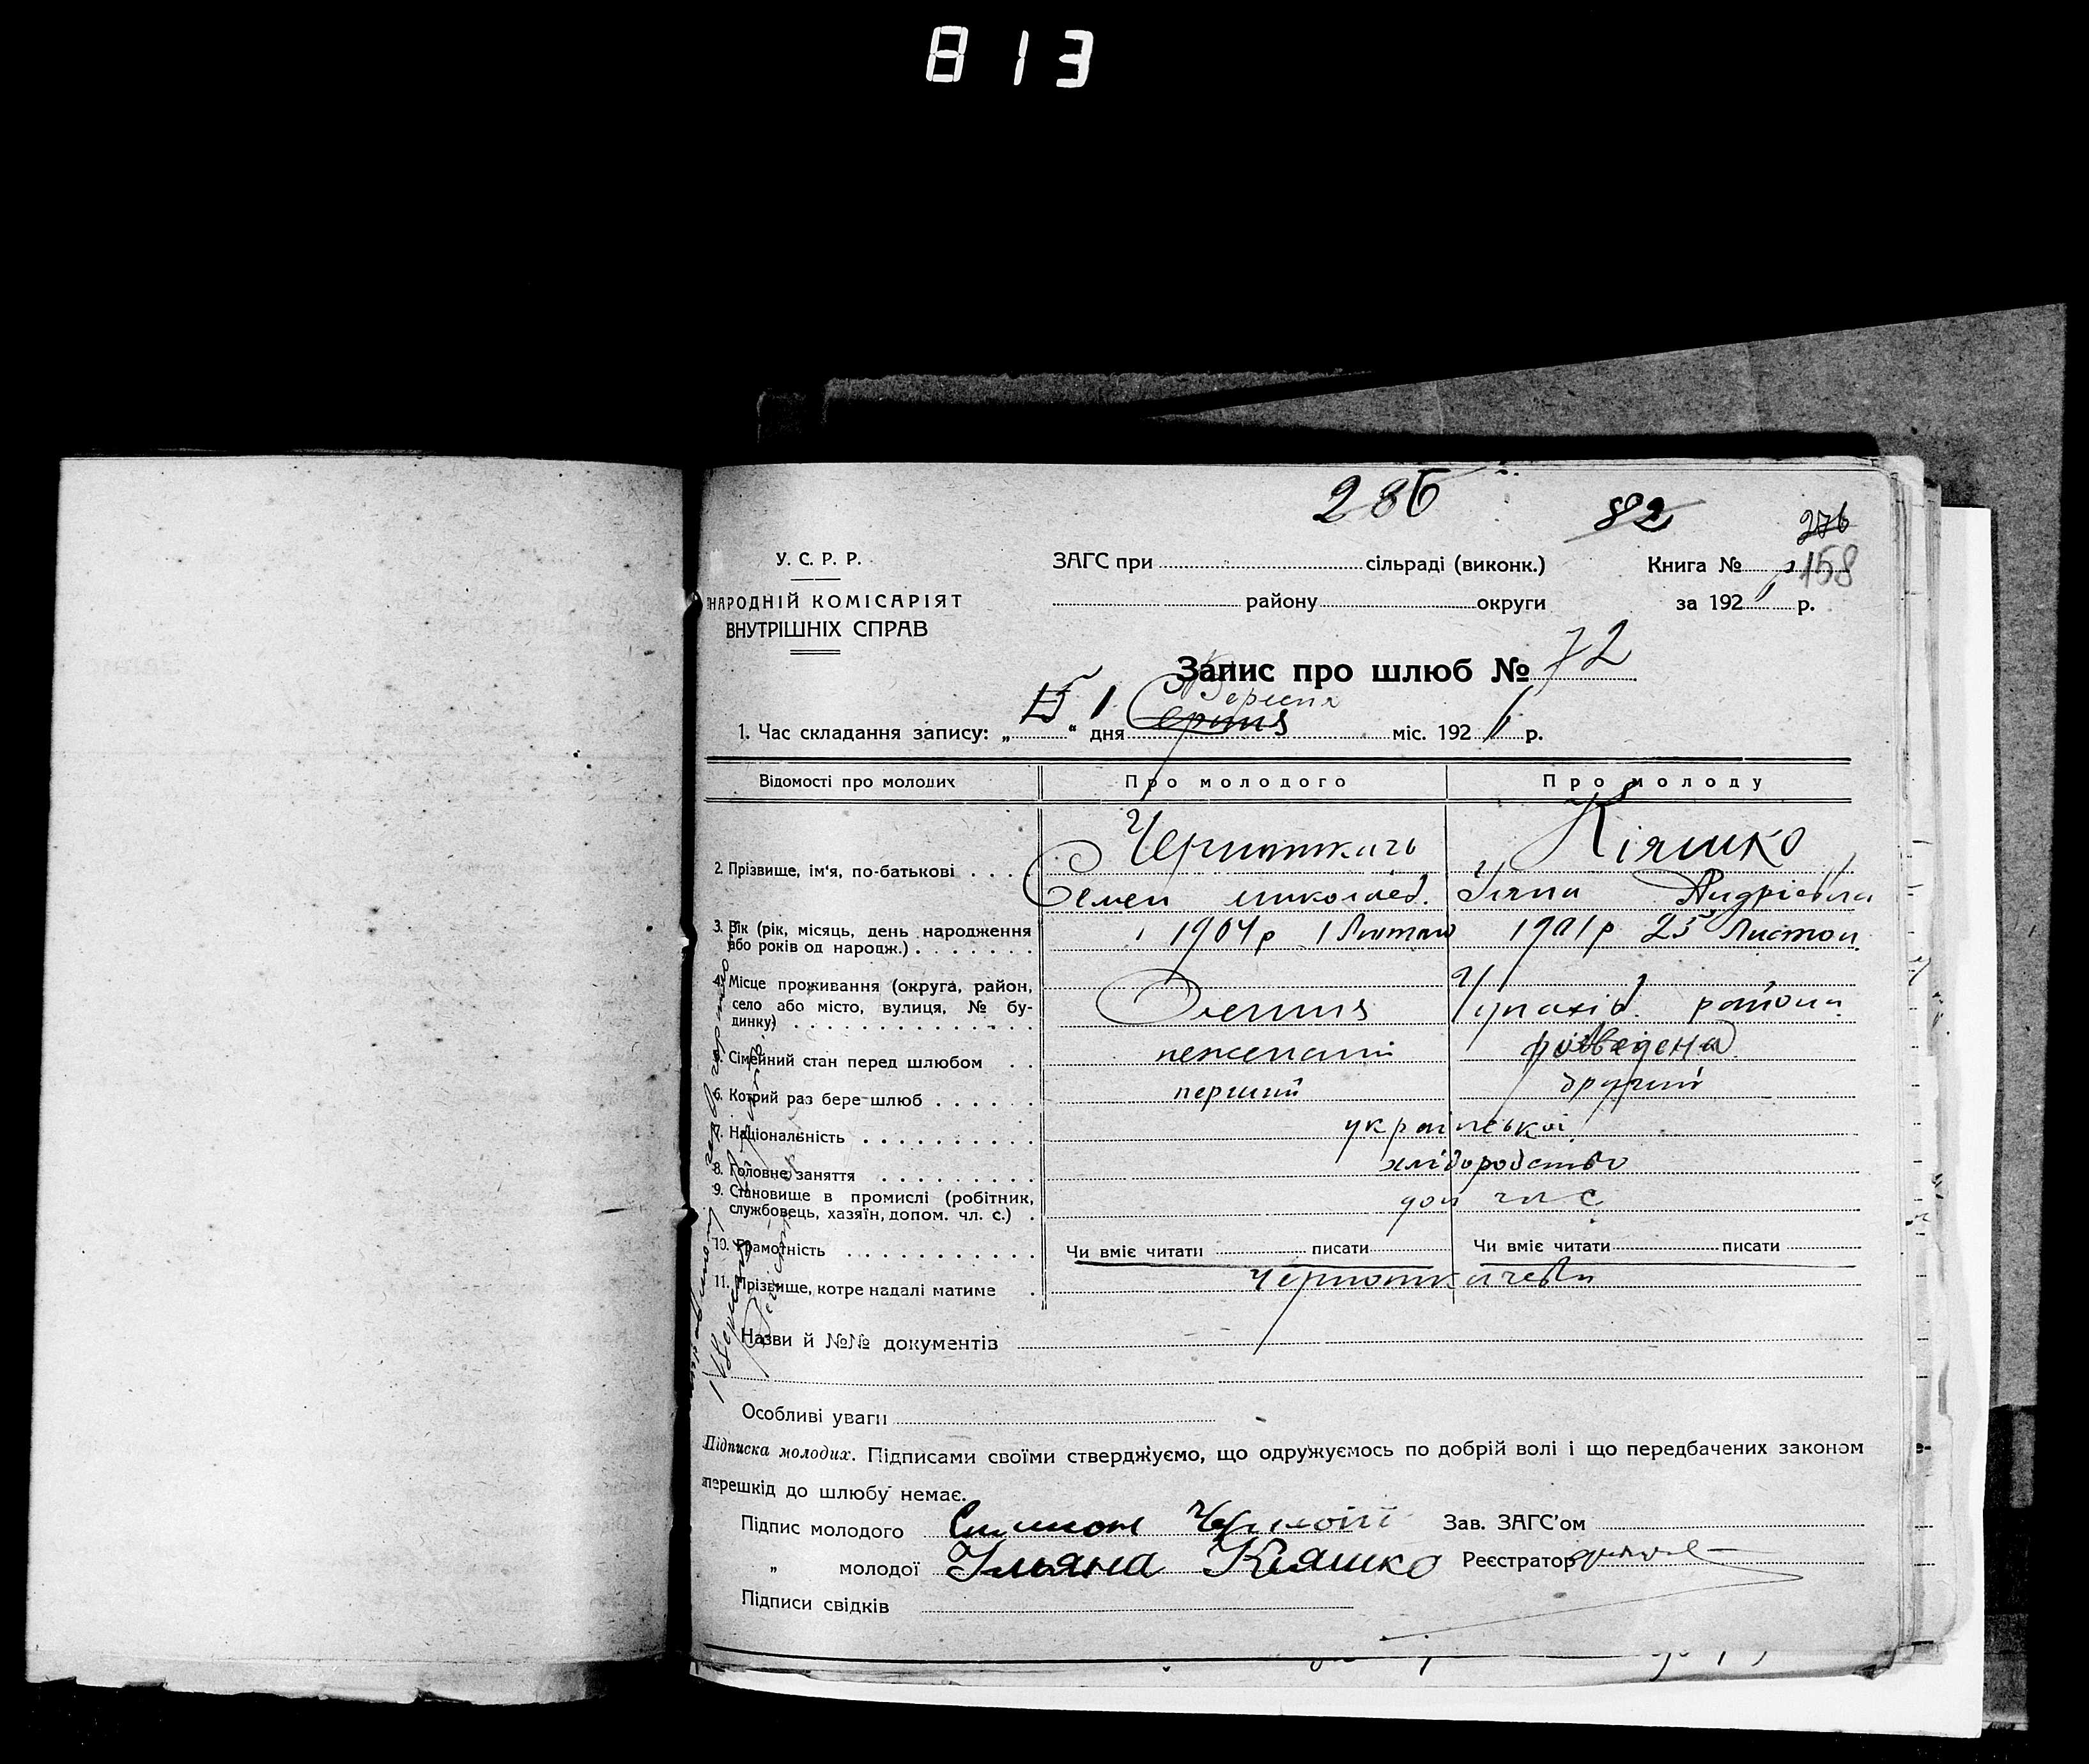 813
286
82
276
У. С. Р. Р.
ЗАГС при сільраді (виконк.)
Книга № 158
НАРОДНІЙ КОМІСАРІЯТ
району округи
за 192 р.
ВНУТРІШНІХ СПРАВ
Запис про шлюб № 72
Вересня
1. Час складання запису: „ “ 1 дня Серпня міс. 192 р.
Відомості про молодих
Про молодого
Про молоду
2. Прізвище, ім'я, по-батькові
Кіяшко
Семен Миколаєв. Уляна Андріевна
3. Вік (рік, місяць, день народження або років од народж.)
1904р 1 Лютаго 1901р 25 Листоп.
4. Місце проживання (округа, район, село або місто, вулиця, № будинку)
району
5. Сімейний стан перед шлюбом нежепатий розведена
6. Котрий раз бере шлюб перший другий
7. Національність української
8. Головне заняття хліборобство
9. Становище в промислі (робітник, службовець, хазяїн, допом. чл. с.) доп чл с
10. Грамотність Чи вміє читати писати Чи вміє читати писати
11. Прізвище, котре надалі матиме
Назви й №№ документів
Особливі уваги
Підписка молодих. Підписами своїми стверджуємо, що одружуємось по добрій волі і що передбачених законом
перешкід до шлюбу немає.
Підпис молодого Зав. ЗАГС'ом
„ молодої Ульяна Кіяшко Реєстратор
Підписи свідків